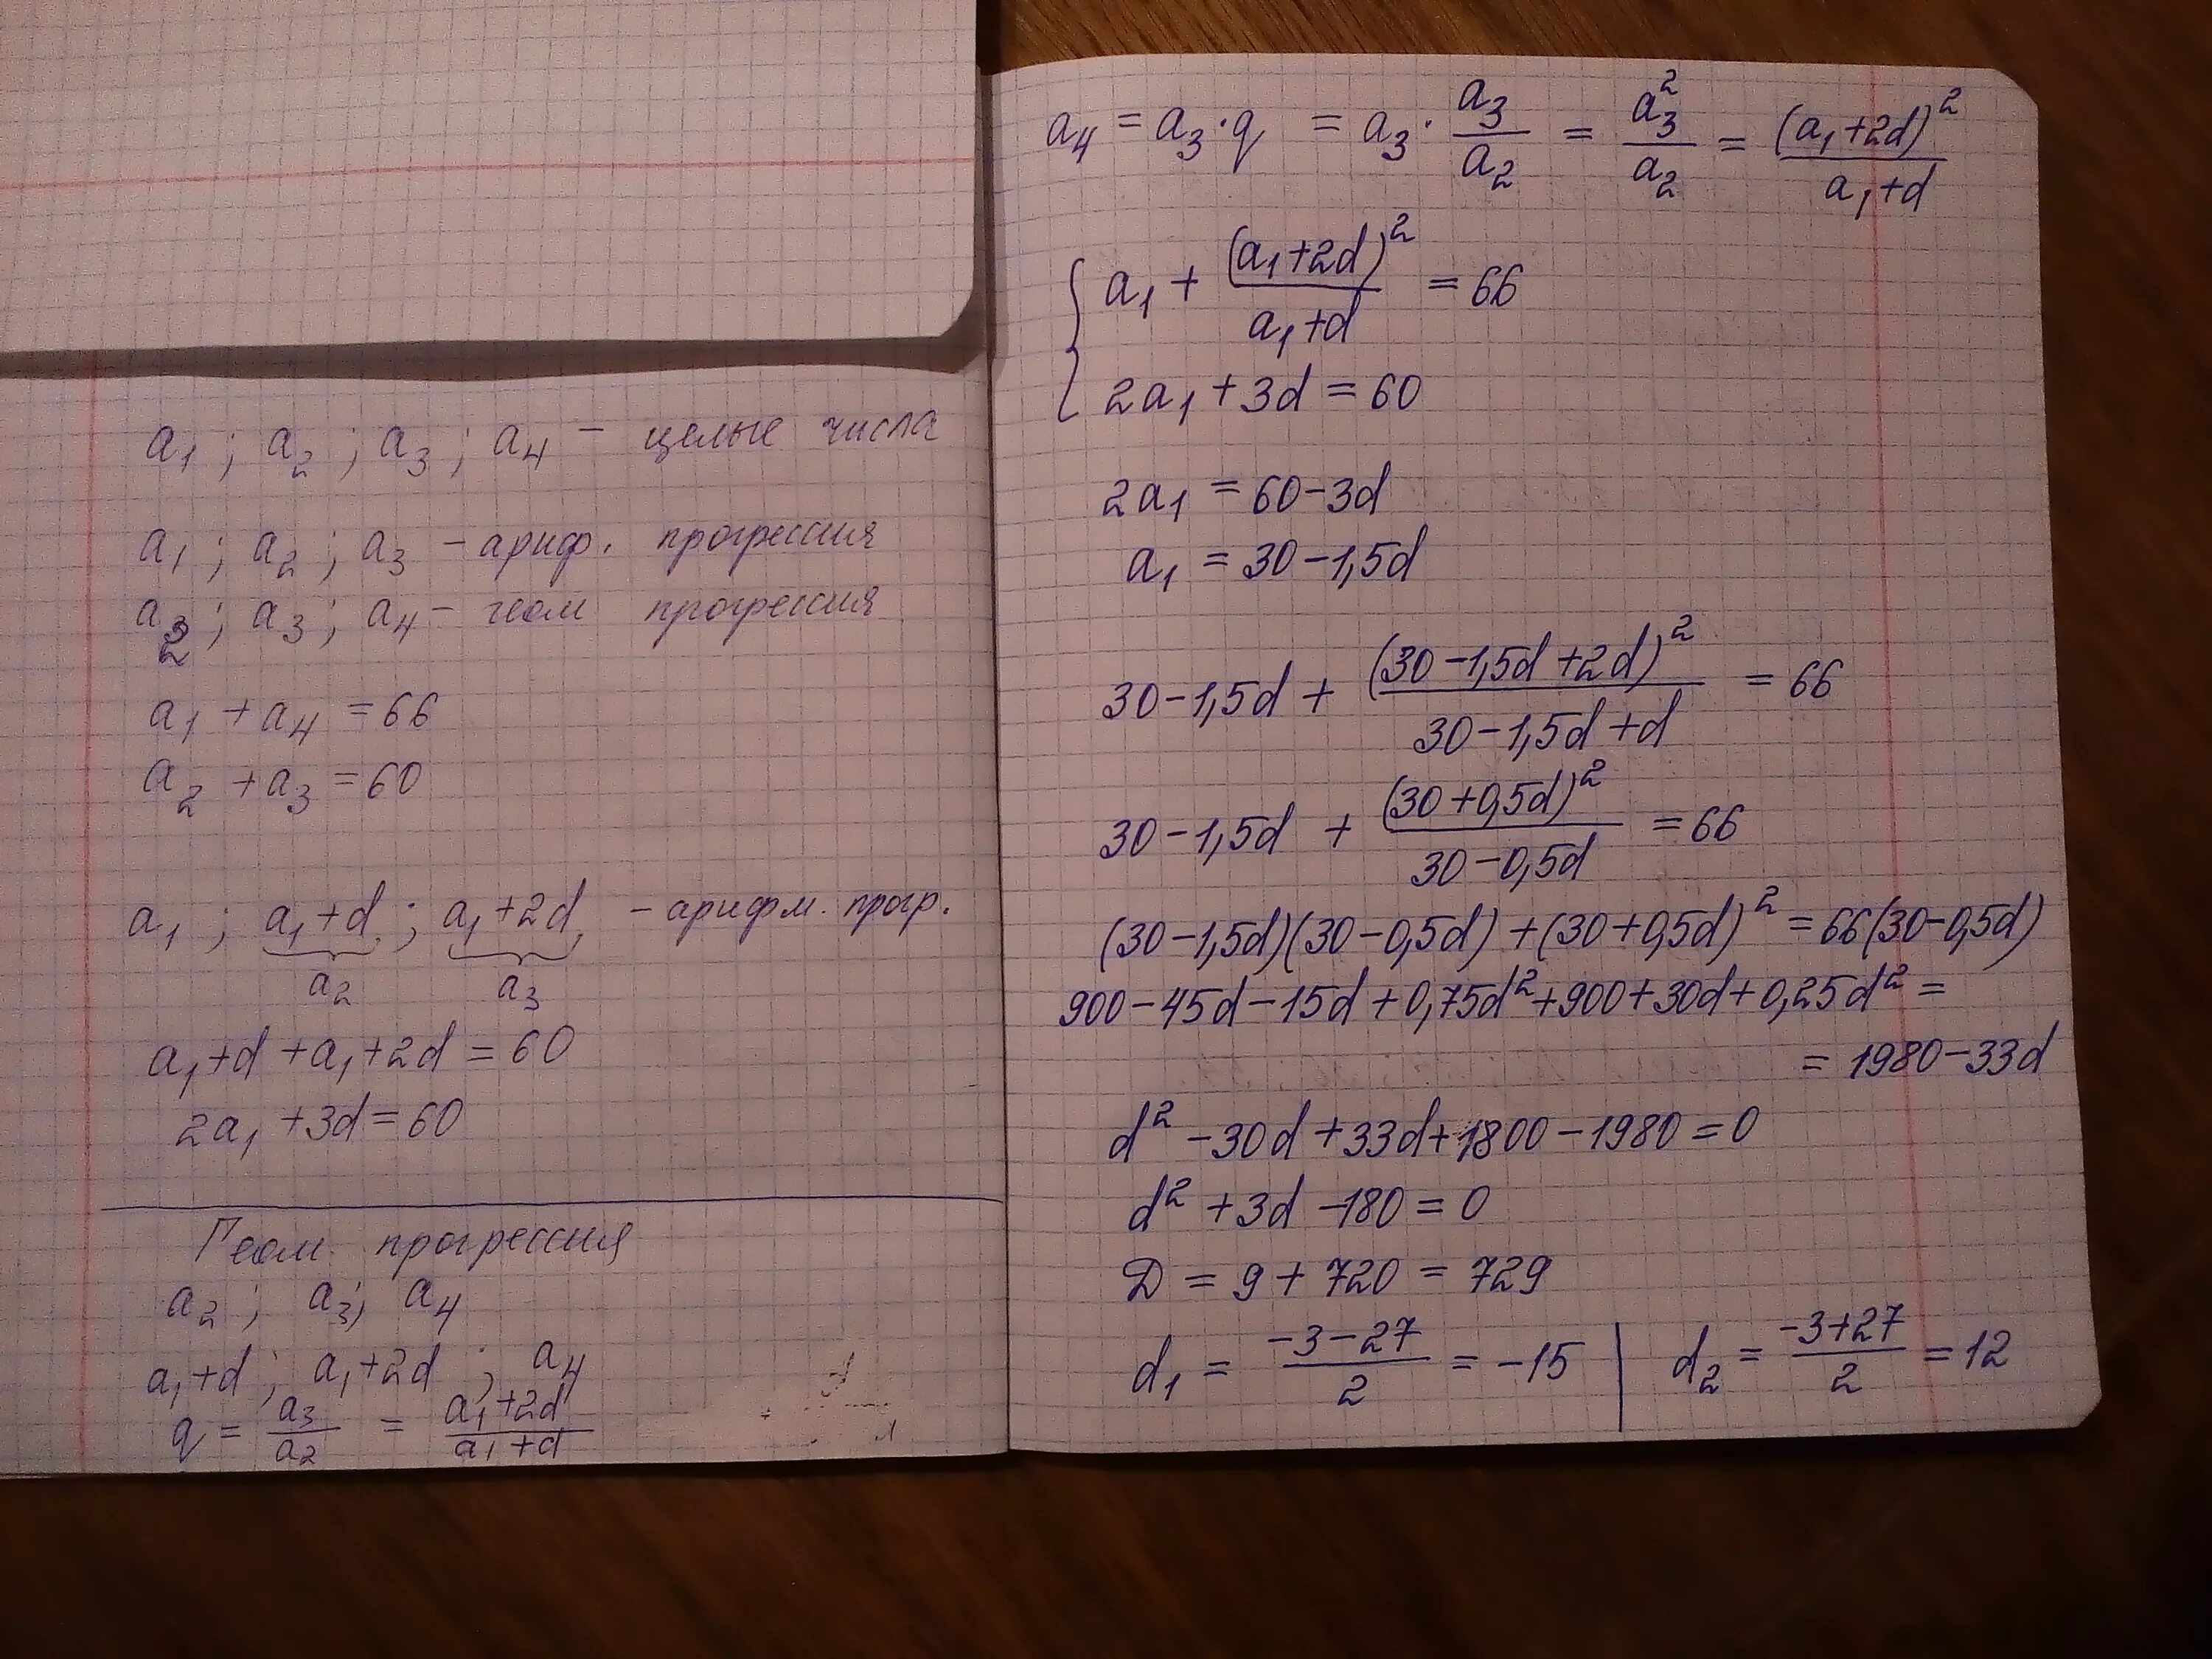 a₁ ; a₂ ; a₃ ; a₄ – целые числа
a₁ ; a₂ ; a₃ – ариф. прогрессия
a₂ ; a₃ ; a₄ – геом прогрессия
a₁ + a₄ = 66
a₂ + a₃ = 60
a₁ ; a₁+d ; a₁+2d – арифм. прогр.
a₂ a₃
a₁+d+a₁+2d = 60
2a₁ + 3d = 60
Геом. прогрессия
a₂ ; a₃ ; a₄
a₁+d ; a₁+2d ; a₄
q = a₃/a₂ = (a₁+2d)/(a₁+d)
a₄ = a₃·q = a₃·a₃/a₂ = a₃²/a₂ = (a₁+2d)²/(a₁+d)
{ a₁ + (a₁+2d)²/(a₁+d) = 66
2a₁ + 3d = 60
2a₁ = 60-3d
a₁ = 30-1,5d
30-1,5d + (30-1,5d+2d)²/(30-1,5d+d) = 66
30-1,5d + (30+0,5d)²/(30-0,5d) = 66
(30-1,5d)(30-0,5d)+(30+0,5d)² = 66(30-0,5d)
900-45d-15d+0,75d²+900+30d+0,25d² =
= 1980-33d
d² -30d+33d+1800-1980=0
d² +3d -180=0
D = 9+720 = 729
d₁ = (-3-27)/2 = -15 | d₂ = (-3+27)/2 = 12